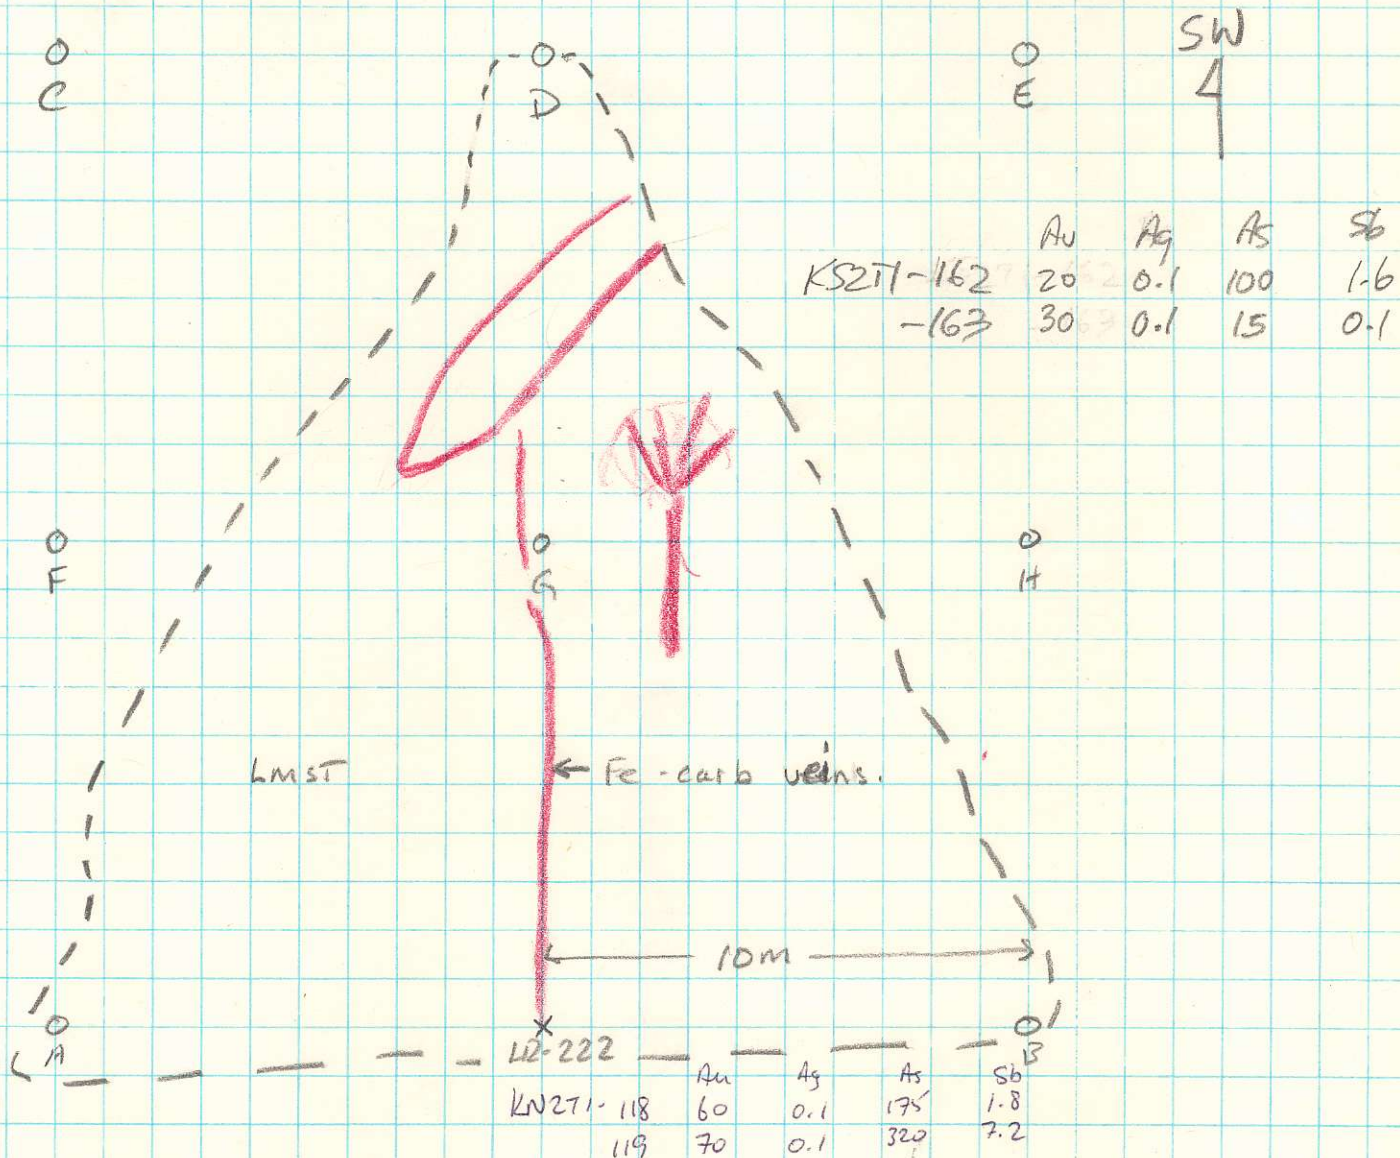 SW
C D E
Au Ag As Sb
KS2T1-162 20 0.1 100 1.6
-163 30 0.1 15 0.1
F G H
LMST ← Fe-carb veins.
10m
A B
LR-222
Au Ag As Sb
KN2T1-118 60 0.1 175 1.8
119 70 0.1 320 7.2